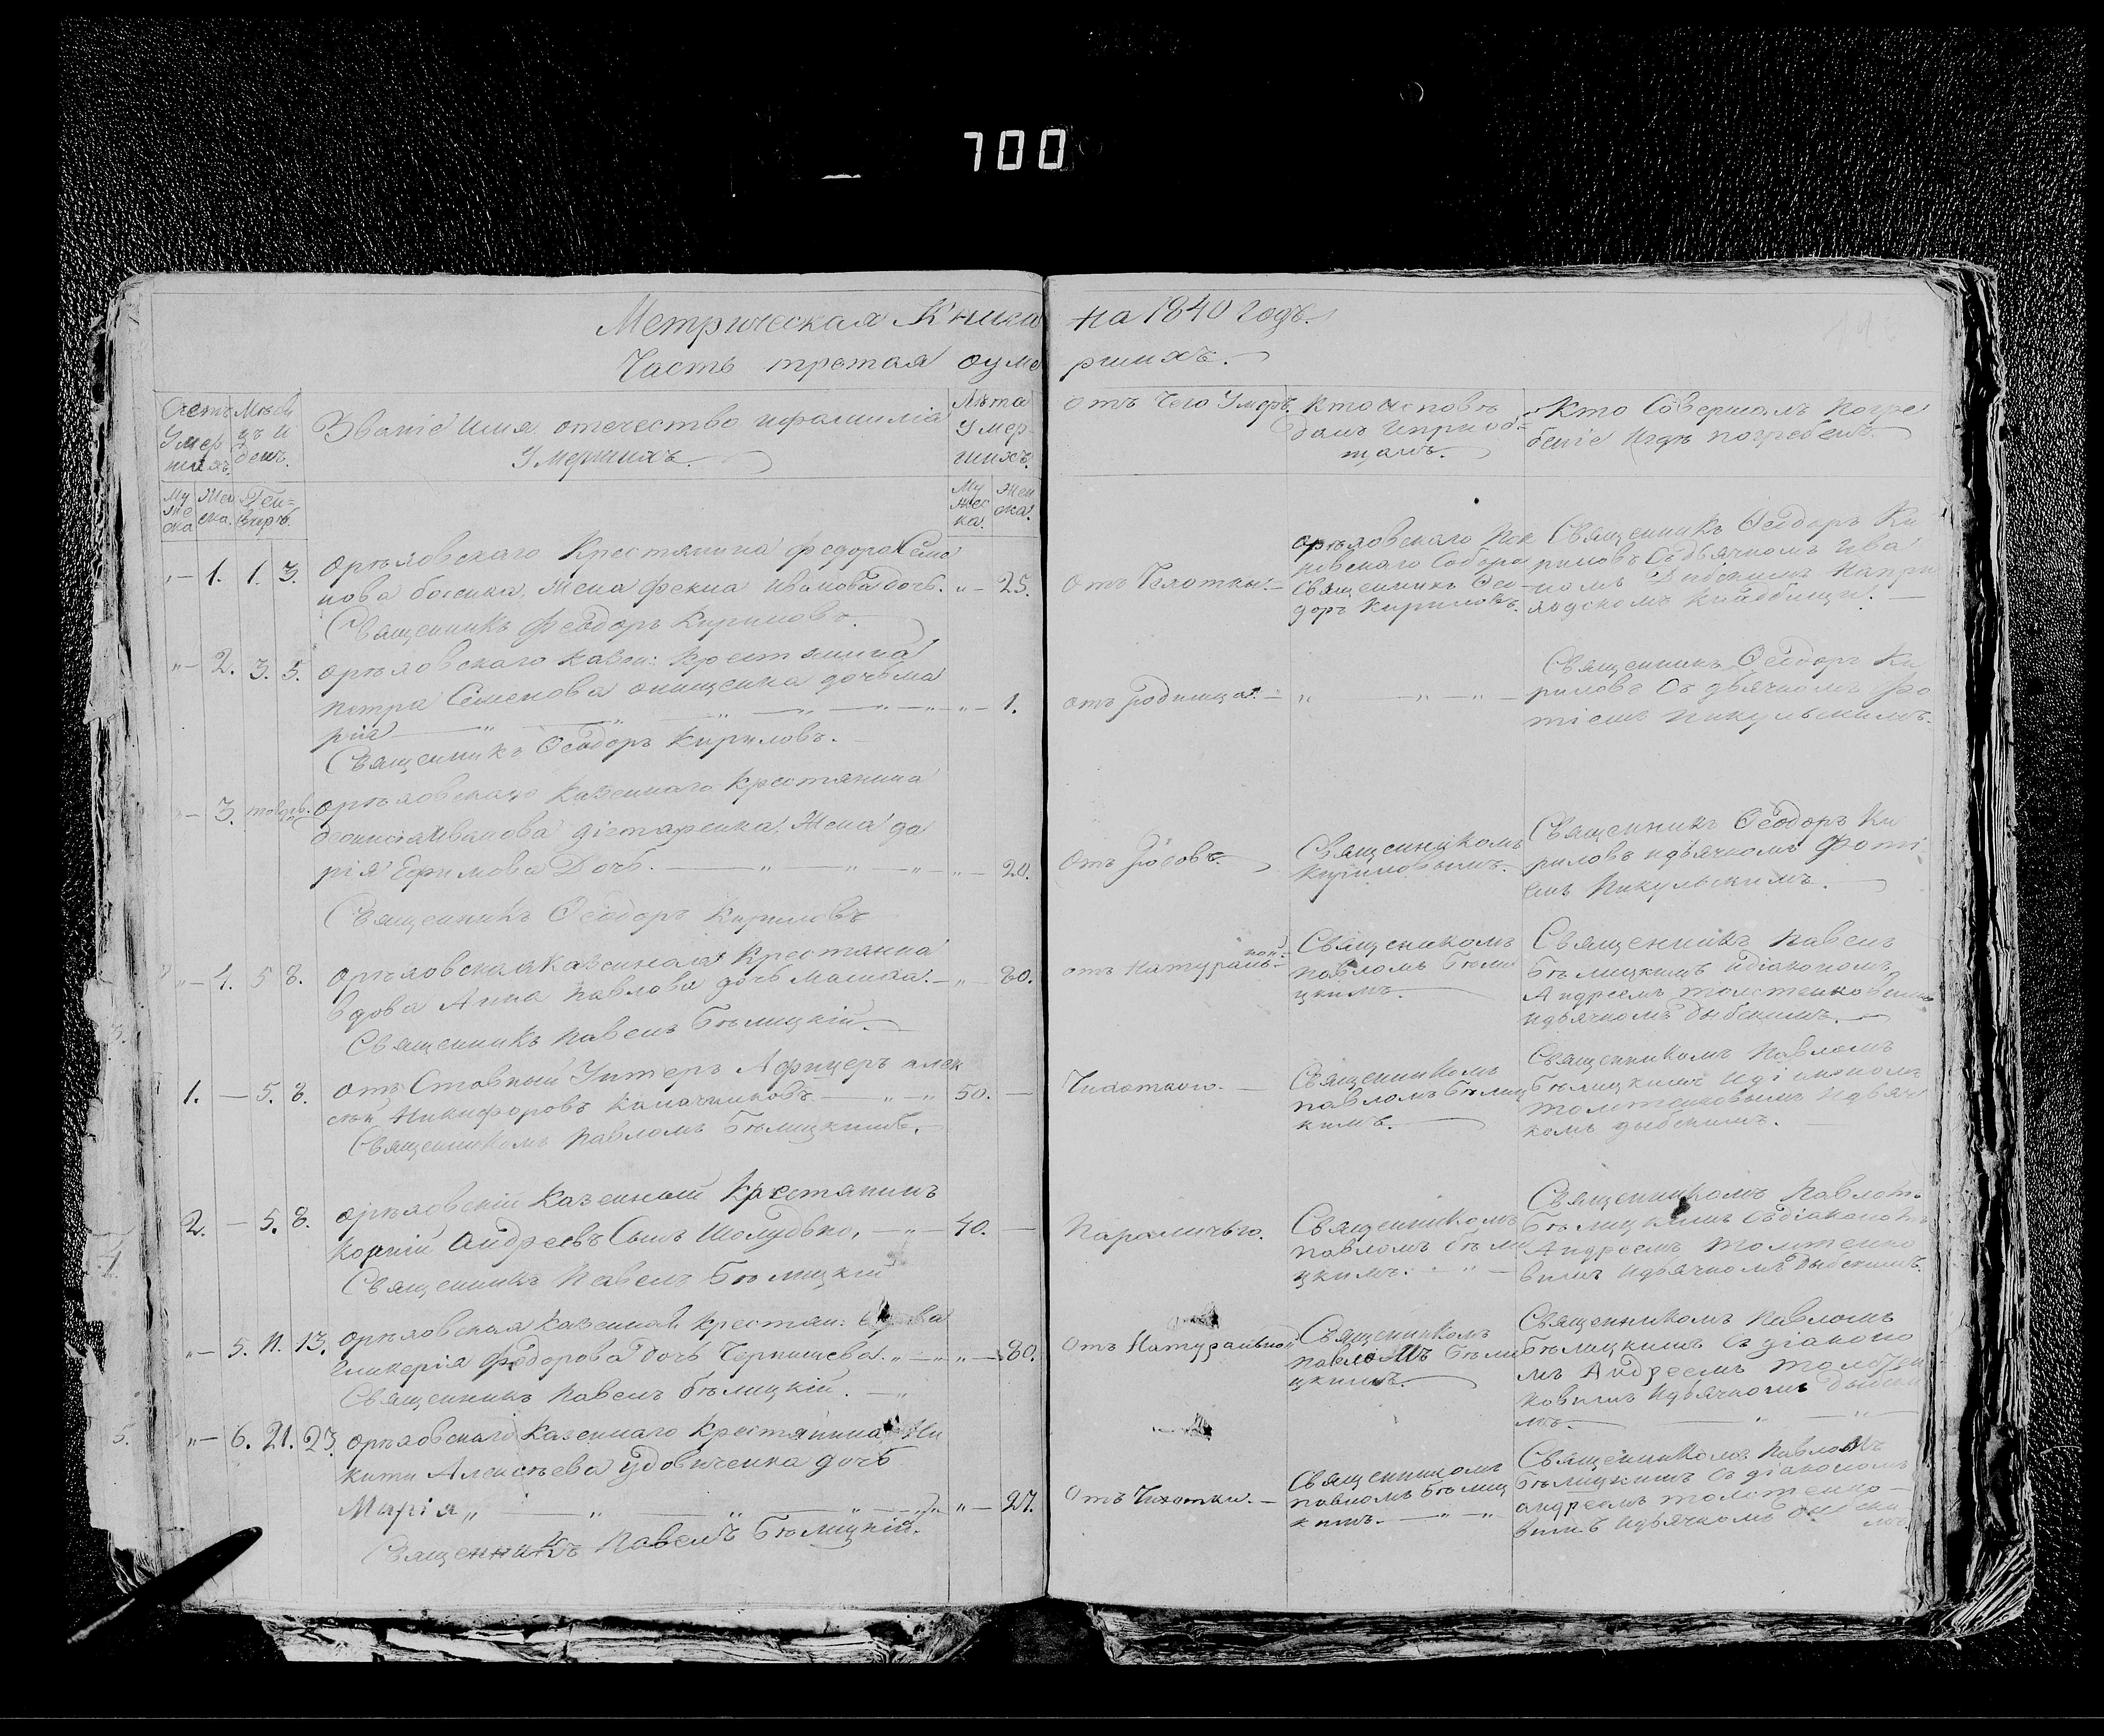 700
Метрическая Книга на 1840 годъ.
Часть третая оуме ршихъ.
Счетъ Умер шихъ.
Мѣся цъ и день.
Званіе Имя отечество ифамилія Умершихъ.
Лѣта Умер шихъ.
отъ Чего Умеръ.
Кто исповѣ далъ иприоб= щалъ.
Кто Совершалъ погре беніе игдѣ погребенъ.
Му же ска
Жен ска.
Ген= варь.
Му жес ка.
Жен ска.
"— 1. 1. 3.
Орѣловскаго Крестянина федора Семе
нова Жена Фекла Иванова дочь. "— 25.
Священникъ Феодоръ Кириловъ.
От
Орѣловскаго
Собора
Священникъ Ѳео
доръ Кириловъ.
Священникъ Ѳеодоръ Ки
риловъ Съдьячкомъ Ива
номъ Дыбскимъ Напри
"— 2. 3. 5.
орѣловскаго казен: крестянина
петра Семенова онищенка дочь ма
рія — " — " — " — 1.
Священникъ Ѳеодоръ Кириловъ.
отъ родимца. —
" — " — " —
Священникъ Ѳеодоръ Ки
риловъ Съ дьячкомъ Фо
тіемъ Пикульскимъ.
"— 3.
Орѣловскаго Казеннаго Крестянина
Иванова дігтяренка, Жена да
рія Ефимова Дочь. — " — " — " — 20.
Священникъ Ѳеодоръ Кириловъ
Отъ родовъ.
Священикомъ
Кириловымъ.
Священникъ Ѳеодоръ Ки
риловъ идьячкомъ Фоті
емъ Пикульскимъ.
"— 4. 5 8.
Орѣловская казенная Крестянка
вдова Анна Павлова дочь — " — 80.
Священникъ Павелъ Бѣлицкій.
отъ Натураль=
ной
Священикомъ
павломъ Бѣли
цкимъ.
Священникъ Павелъ
Бѣлицкимъ идіакономъ
Андреемъ толстенковымъ
идьячкомъ дыбскимъ.
1. — 5. 8.
отъ Ставный Унтеръ Афицеръ алек
сѣй Никифоровъ Калачниковъ — " — " 50. —
Священникомъ Павломъ Бѣлицкимъ.
Чихоткою. —
Священникомъ
павломъ Бѣлиц
кимъ.
Священникомъ Павломъ
Бѣлицкимъ идіякономъ
толстенковымъ идьяч
комъ дыбскимъ.
2. — 5. 8.
орѣловскій Казенный Крестянинъ
Корній Андреевъ Сынъ Шолудько, — " — 40. —
Священникъ Павелъ Бѣлицкій
Параличью.
Священникомъ
павломъ бѣли
цкимъ. — " —
Священникомъ Павломъ
Бѣлицкимъ Съдіакономъ
Андреемъ толстенко
вимъ идьячкомъ дыбскимъ.
"— 5. 11. 13.
орѣловская казенная крестян:
Гликерія Федорова дочь Чернишева. "—"— "— 80.
Священникъ Павелъ бѣлицкій. — "
Отъ Натуральной
Священникомъ
павломъ Бѣли
цкимъ.
Священникомъ Павломъ
Бѣлицкимъ Съ діаконо
мъ Андреемъ толстен
ковимъ идьячкомъ дыбски
мъ. — " — "
"— 6. 21. 23.
орѣловскаго Казеннаго Крестянина Ни
кити Алексѣева удовиченка дочь
Марія " — " — " — " — "— 27.
Священникъ Павелъ Бѣлицкій.
Отъ Чихотки. —
Священникомъ
павломъ Бѣлиц
кимъ. — " — "
Священникомъ Павломъ
Бѣлицкимъ Съ діакономъ
андреемъ толстенко
вимъ идьячкомъ дыбски
мъ.